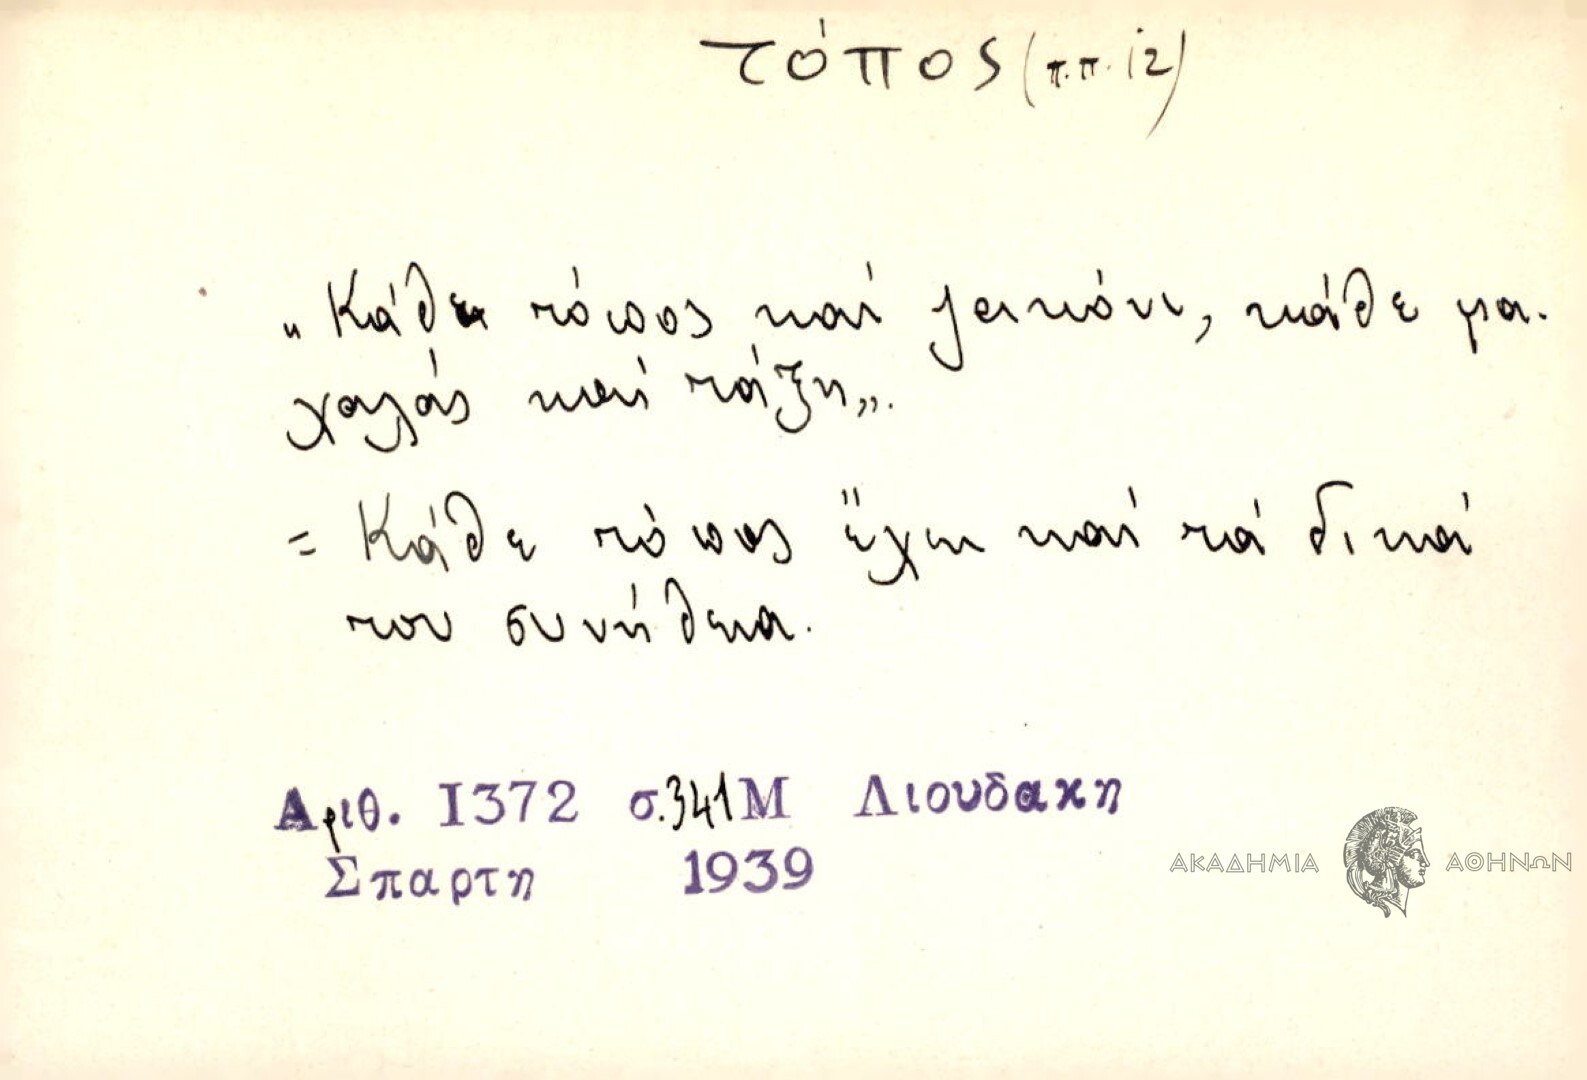 τόπος (π.π. 12)
„Κάθε τόπος καί ζακόνι, κάθε μα-
χαλάς καί τάξη„.
= Κάθε τόπος ἔχει καί τά δικά
του συνήθεια.
Αριθ. 1372 σ.341 Μ Λιουδακη
Σπαρτη 1939
ΑΚΑΔΗΜΙΑ ΑΘΗΝΩΝ